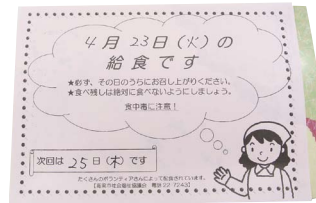 4月23日(火)の
給食です
★必ず、その日のうちにお召し上がりください。
★食べ残しは絶対に食べないようにしましょう。
食中毒に注意！
次回は 25日(木)です
たくさんのボランティアさんによって配食されています。